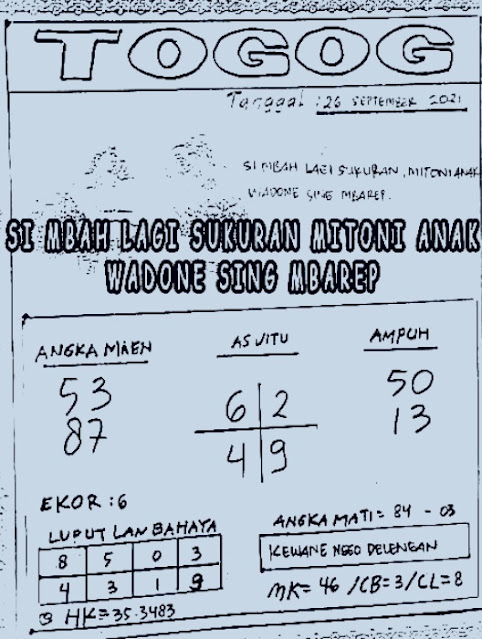 TOGOG
Tanggal : 26 SEPTEMBER 2021
SI MBAH LAGI SUKURAN, MITONI ANAK
WADONE SING MBAREP.
SI MBAH LAGI SUKURAN MITONI ANAK
WADONE SING MBAREP
ANGKA MAEN
53
87
AS JITU
6 2
4 9
AMPUH
50
13
EKOR : 6
LUPUT LAN BAHAYA
8 5 0 3
4 3 1 9
HK=35.3483
ANGKA MATI = 84 - 03
KEWANE NGGO DELENGAN
MK= 46 /CB=3/CL=8